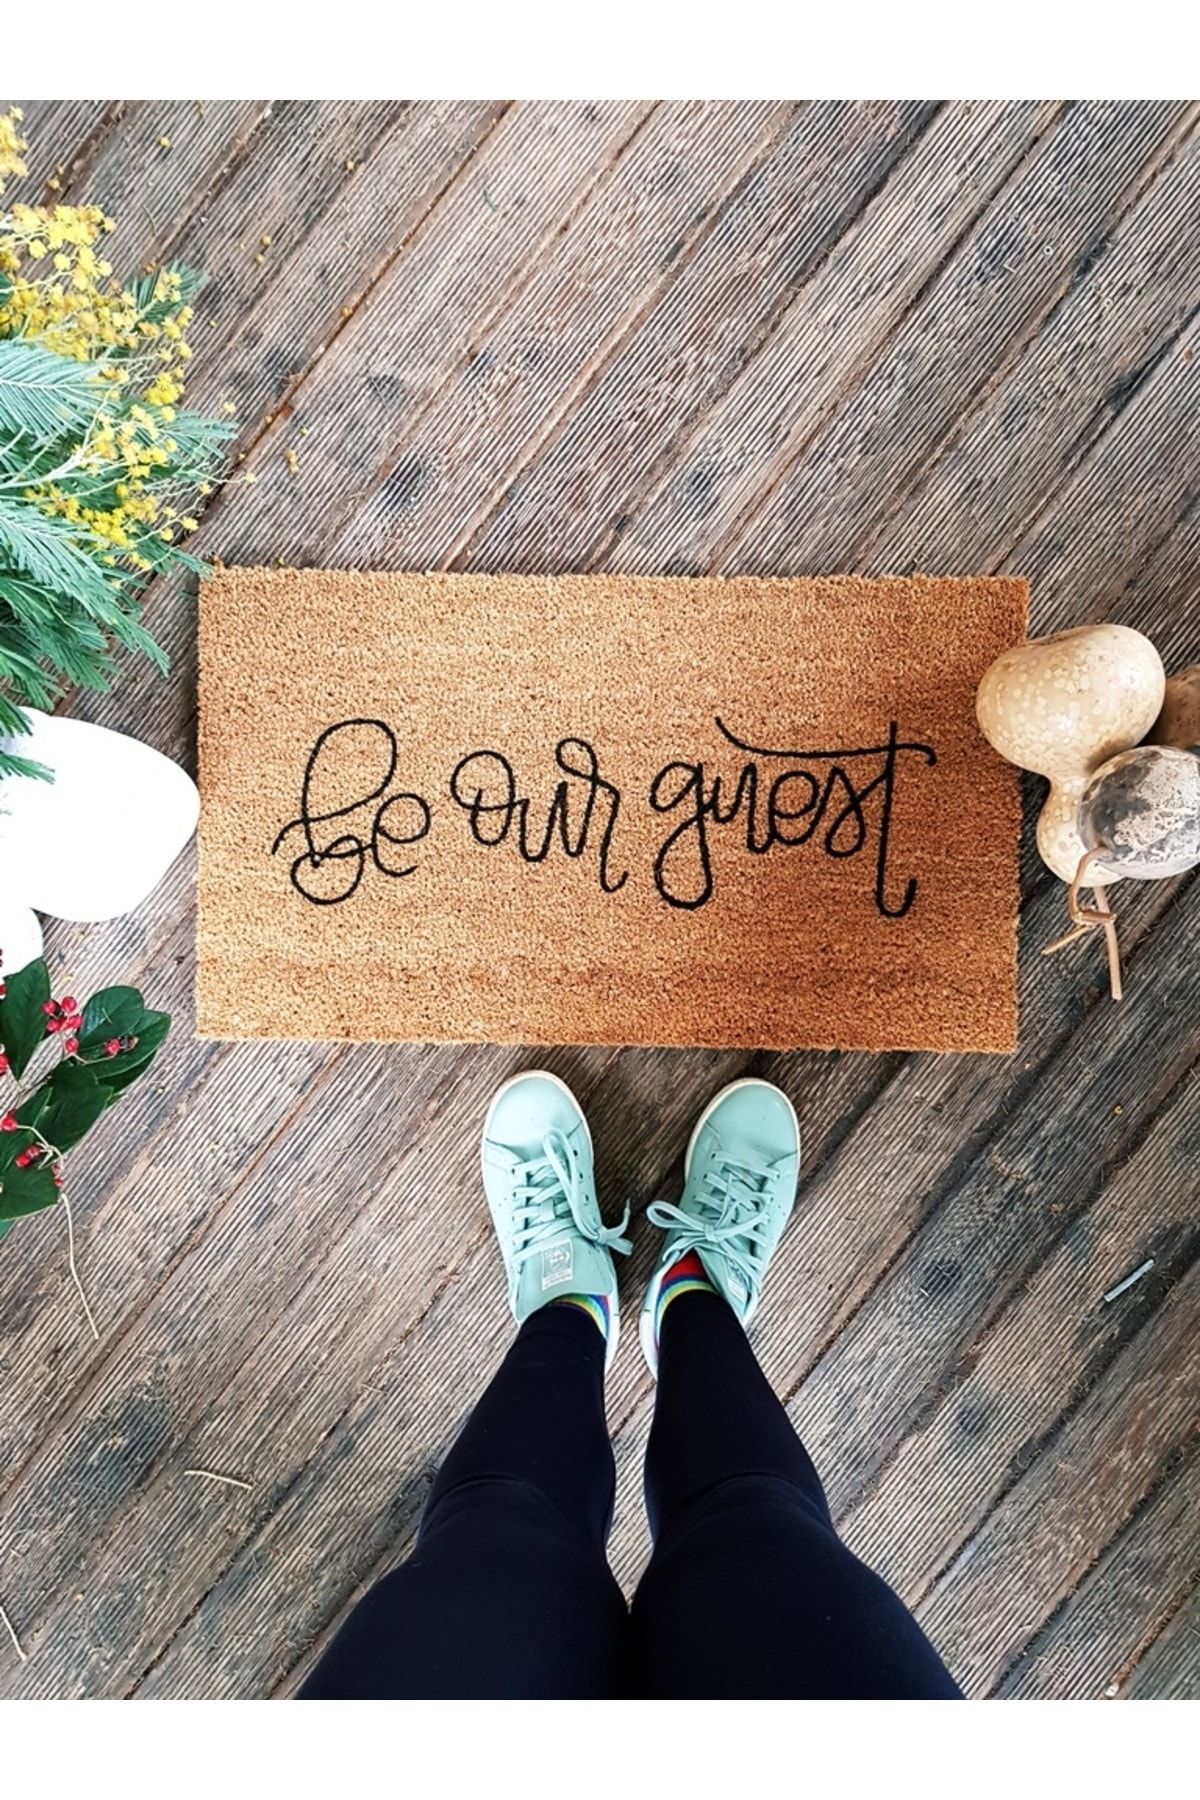 be our guest